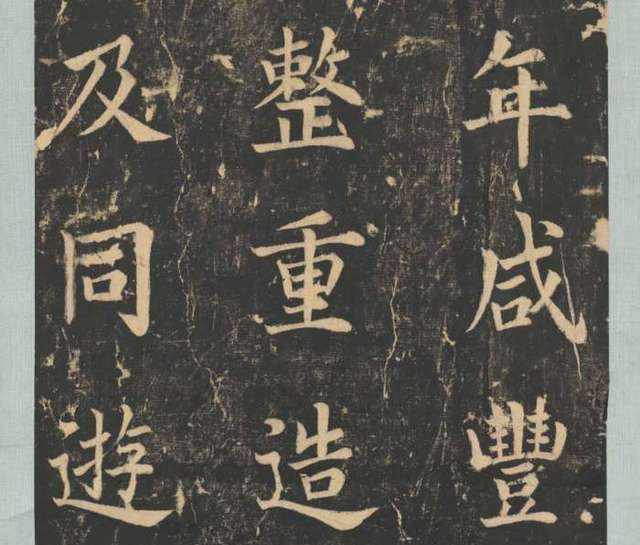 年咸豐
整重造
及同遊